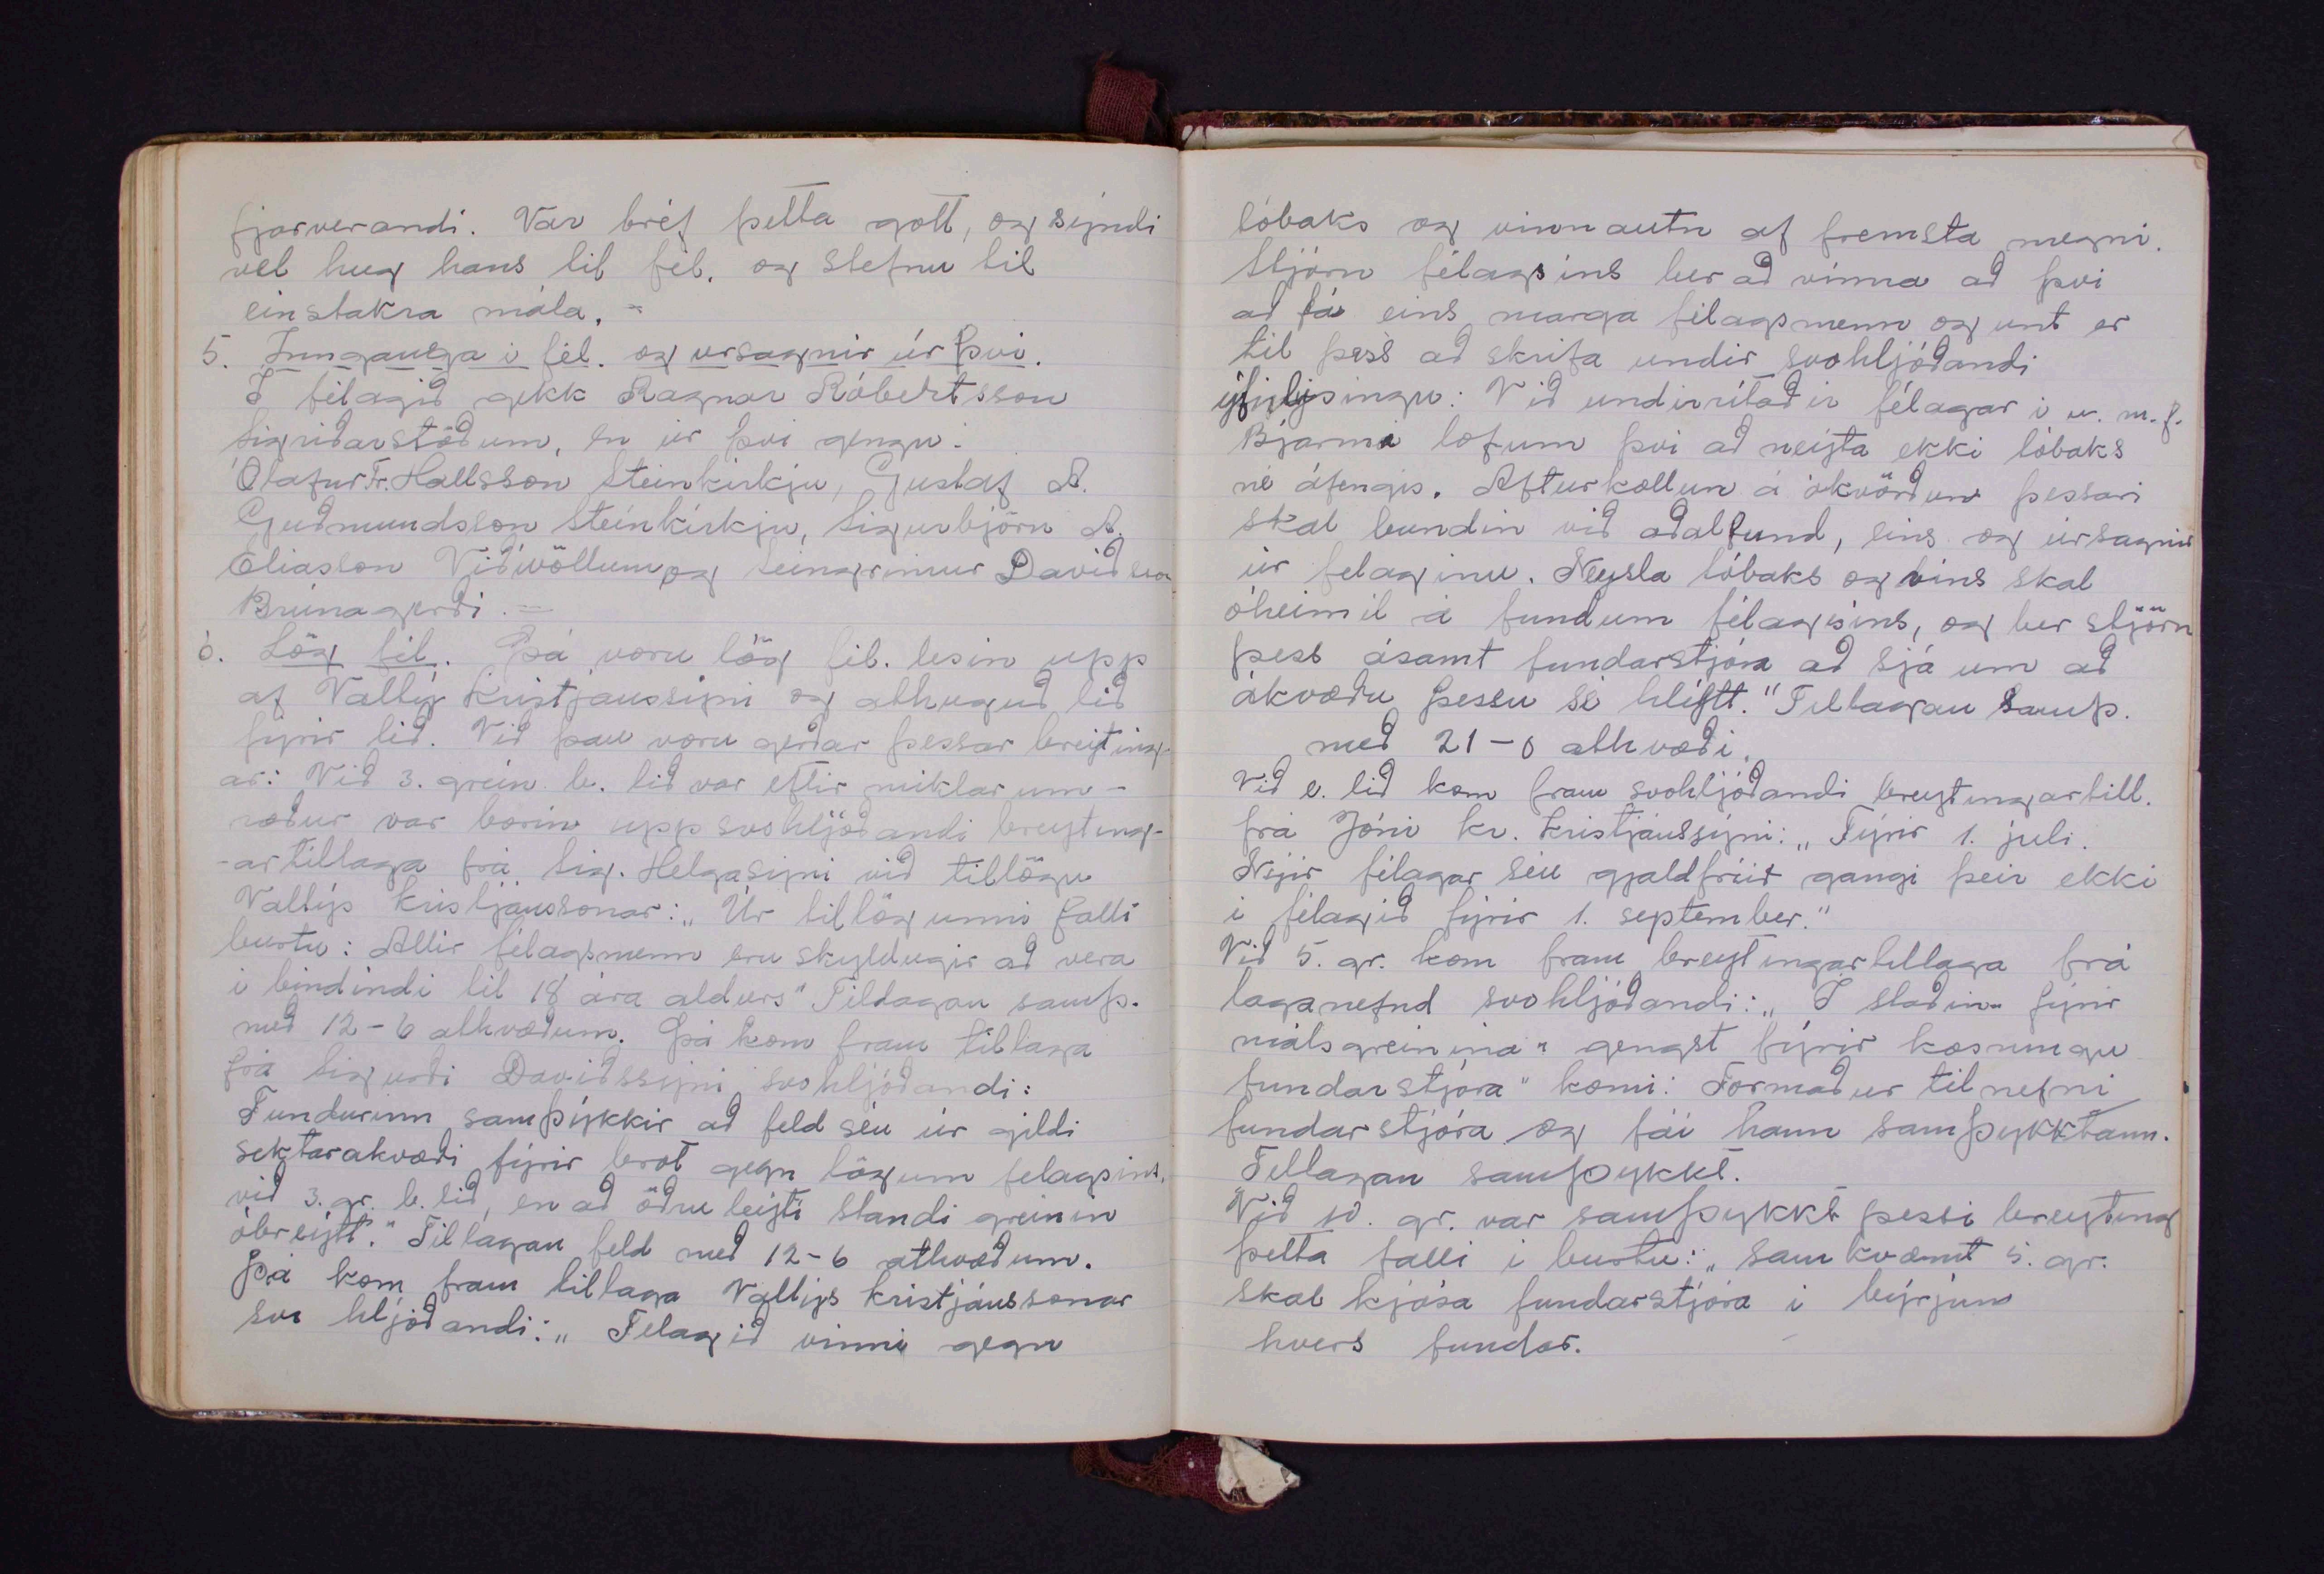 fjarverandi. Var bréf þetta gott, og sýndi
vel hug hans til fél. og stefnu til
einstakra mála. -
5. Innganga í fél. og ursagnir úr því.
Í félagið gekk Ragnar Róbertsson
Sigríðarstöðum, en úr því gengu:
Ólafur Fr. Hallsson Steinkirkju, Gustaf A.
Guðmundsson Steinkirkju, Sigurbjörn A.
Elíasson Viðivöllum og Steingrímur Davíðsson
Brúnagerði. -
6. Lög fél. Þá voru lög fél. lesin upp
af Valtý Kristjánssyni og athuguð lið
fyrir lið. Við þau voru gerðar þessar breyting-
ar: Við 3. grein b. lið var eftir miklar um-
ræður var borin upp svohljóðandi breyting-
-artillaga frá Sig. Helgasyni við tillögu
Valtýs Kristjánssonar: „Úr tillögunni falli
burtu: Allir félagsmenn eru skyldugir að vera
í bindindi til 18 ára aldurs" Tillagan samþ.
með 12-6 atkvæðum. Þá kom fram tillaga
frá Sigurði Davíðssyni svohljóðandi:
Fundurinn samþykkir að feld séu úr gildi
sektarakvæði fyrir brot gegn lögum felagsins.
við 3. gr. b. lið, en að öðru leyti standi greinin
óbreytt." Tillagan feld með 12-6 atkvæðum.
Þá kom fram tillaga Valtýs Kristjánssonar
svo hljóðandi: „Felagið vinni gegn
tóbaks og vínnautn af fremsta megni.
Stjórn félagsins ber að vinna að því
að fá eins marga félagsmenn og unt er
til þess að skrifa undir svohljóðandi
yfirlýsingu: Við undirritaðir félagar í u. m. f.
Bjarma lofum því að neyta ekki tóbaks
né áfengis. Afturköllun á ákvörðun þessari
skal bundin við aðalfund, eins og úrsagnir
úr felaginu. Neysla tóbaks og víns skal
óheimil á fundum félagsins, og ber stjórn
þess ásamt fundarstjóra að sjá um að
ákvæðu þessu sé hlýtt." Tillagan samþ.
með 21-0 atkvæði.
Við e. lið kom fram svohljóðandi breytingartill.
frá Jóni Kr. Kristjánssyni: „Fyrir 1. júli.
Nýir félagar séu gjaldfríir gangi þeir ekki
í félagið fyrir 1. september."
Við 5. gr. kom fram breytingartillaga frá
laganefnd svohljóðandi: „Í staðin fyrir
málsgreinina „ gengst fyrir kosningu
fundarstjóra" komi: Formaður tilnefni
fundarstjóra og fái hann samþykktann.
Tillagan samþykkt.
Við 10. gr. var samþykkt þessi breyting
þetta falli í burtu: „samkvæmt 5. gr.
skal kjósa fundarstjóra í býrjun
hvers fundar.